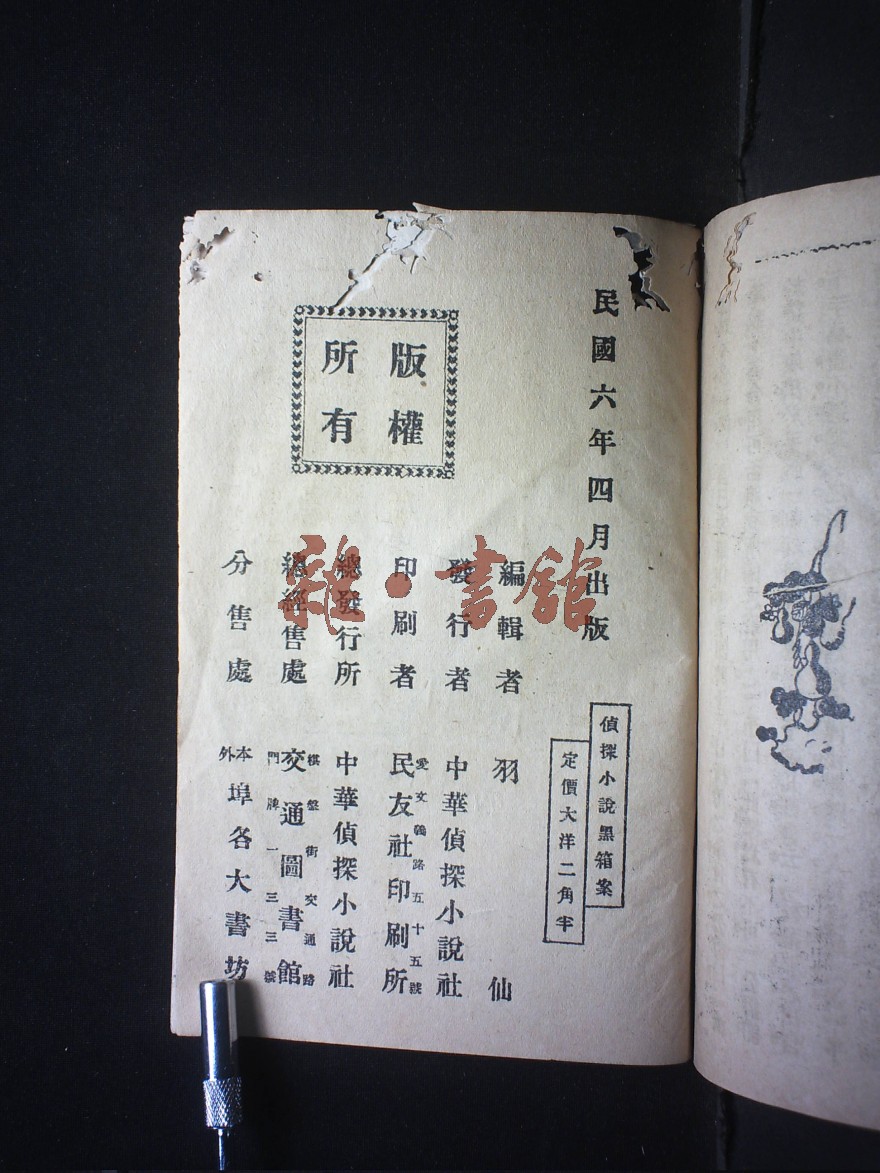 民國六年四月出版
偵探小說黑箱案
定價大洋二角半
版權
所有
編輯者 羽仙
發行者 中華偵探小說社
印刷者 愛文義路五十五號 民友社印刷所
總發行所 中華偵探小說社
總經售處 棋盤街交通路 交通圖書館 門牌一三三號
分售處 本外埠各大書坊
雜·書館